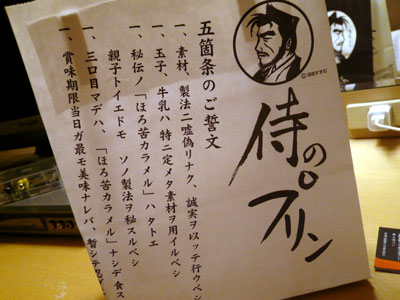 侍のプリン
五箇条のご誓文
一、素材、製法ニ嘘偽リナク、誠実ヲ以ッテ行ウベシ
一、玉子、牛乳ハ特ニ定メタ素材ヲ用イルベシ
一、秘伝ノ「ほろ苦カラメル」ハタトエ
親子トイエドモ ソノ製法ヲ秘スルベシ
一、三口目マデハ、「ほろ苦カラメル」ナシデ食ス
一、賞味期限当日ガ最モ美味ナレバ、暫シ